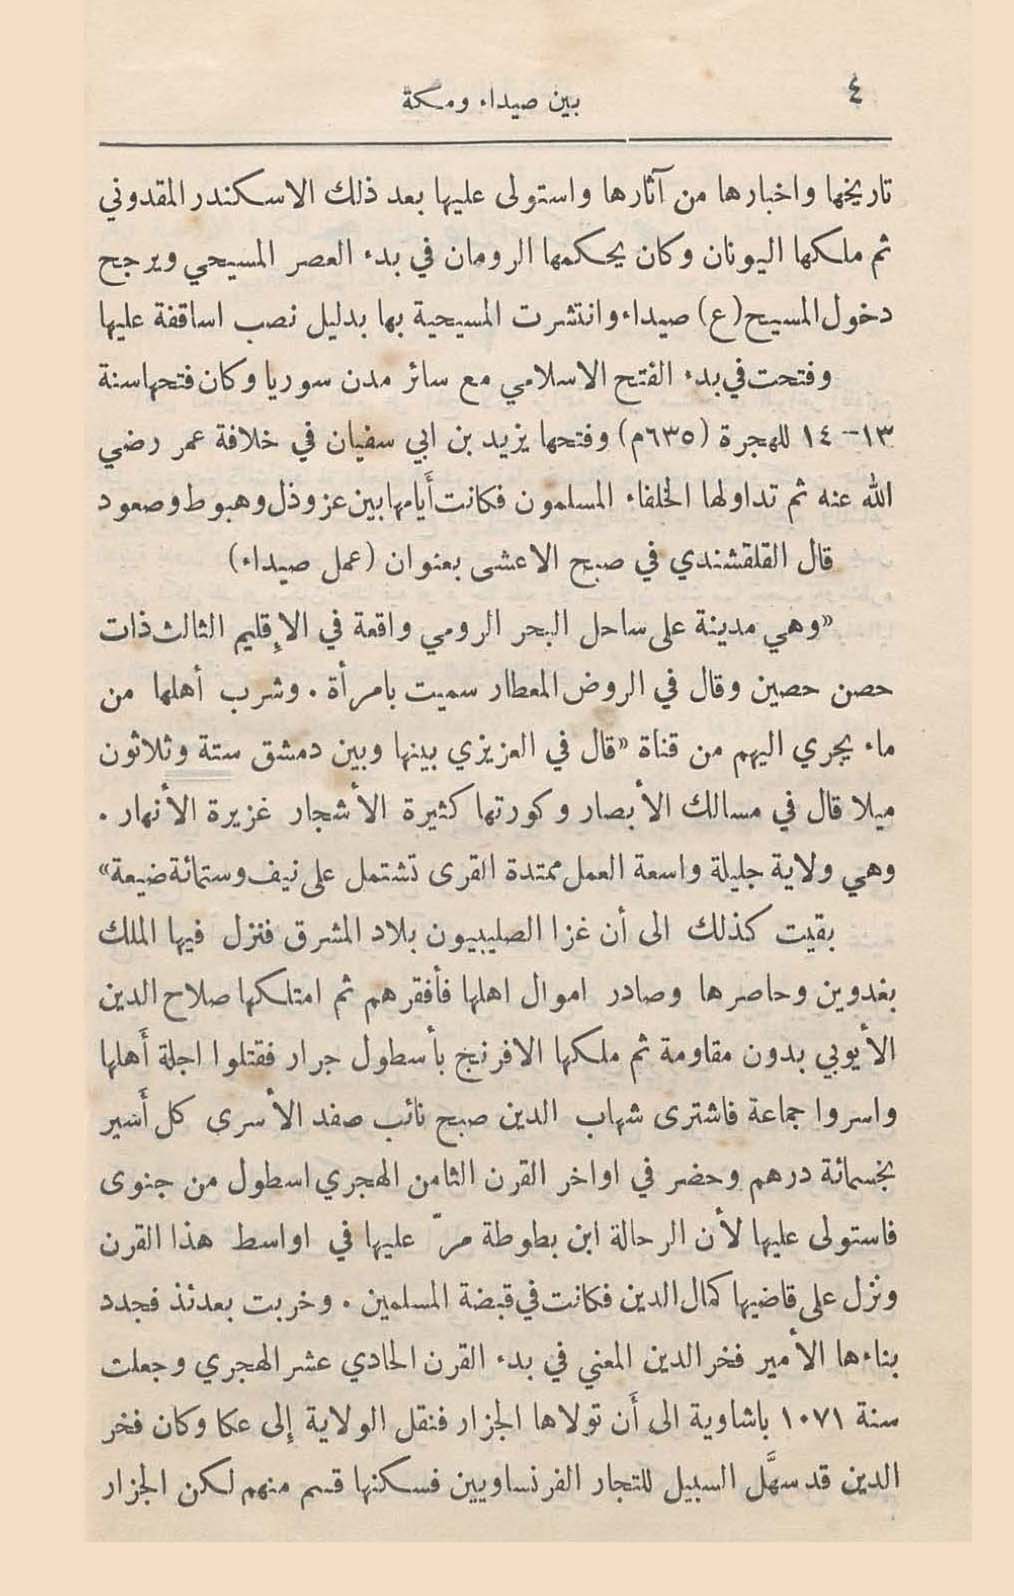 ٤
بين صيداء ومكة
تاريخها واخبارها من آثارها واستولى عليها بعد ذلك الاسكندر المقدوني
ثم ملكها اليونان وكان يحكمها الرومان في بدء العصر المسيحي ويرجح
دخول المسيح (ع) صيداء وانتشرت المسيحية بها بدليل نصب اساقفة عليها
وفتحت في بدء الفتح الاسلامي مع سائر مدن سوريا وكان فتحها سنة
١٣–١٤ للهجرة (٦٣٥م) وفتحها يزيد بن ابي سفيان في خلافة عمر رضي
الله عنه ثم تداولها الخلفاء المسلمون فكانت أَيامها بين عز وذل وهبوط وصعود
قال القلقشندي في صبح الاعشى بعنوان (عمل صيداء)
«وهي مدينة على ساحل البحر الرومي واقعة في الإِقليم الثالث ذات
حصن حصين وقال في الروض المعطار سميت بامرأة . وشرب أهلها من
ماء يجري اليهم من قناة «قال في العزيزي بينها وبين دمشق ستة وثلاثون
ميلا قال في مسالك الأبصار وكورتها كثيرة الأشجار غزيرة الأنهار .
وهي ولاية جليلة واسعة العمل ممتدة القرى تشتمل على نيف وستمائة ضيعة»
بقيت كذلك الى أن غزا الصليبيون بلاد المشرق فنزل فيها الملك
بغدوين وحاصرها وصادر اموال اهلها فأفقرهم ثم امتلكها صلاح الدين
الأيوبي بدون مقاومة ثم ملكها الافرنج بأسطول جرار فقتلوا اجلة أَهلها
واسروا جماعة فاشترى شهاب الدين صبح نائب صفد الأسرى كل أَسير
بخسمائة درهم وحضر في اواخر القرن الثامن الهجري اسطول من جنوى
فاستولى عليها لأن الرحالة ابن بطوطة مرّ عليها في اواسط هذا القرن
ونزل على قاضيها كمال الدين فكانت في قبضة المسلمين . وخربت بعدئذ فجدد
بناءها الأمير فخر الدين المعني في بدء القرن الحادي عشر الهجري وجعلت
سنة ١٠٧١ باشاوية الى أَن تولاها الجزار فنقل الولاية إِلى عكا وكان فخر
الدين قد سهَّل السبيل للتجار الفرنساويين فسكنها قسم منهم لكن الجزار